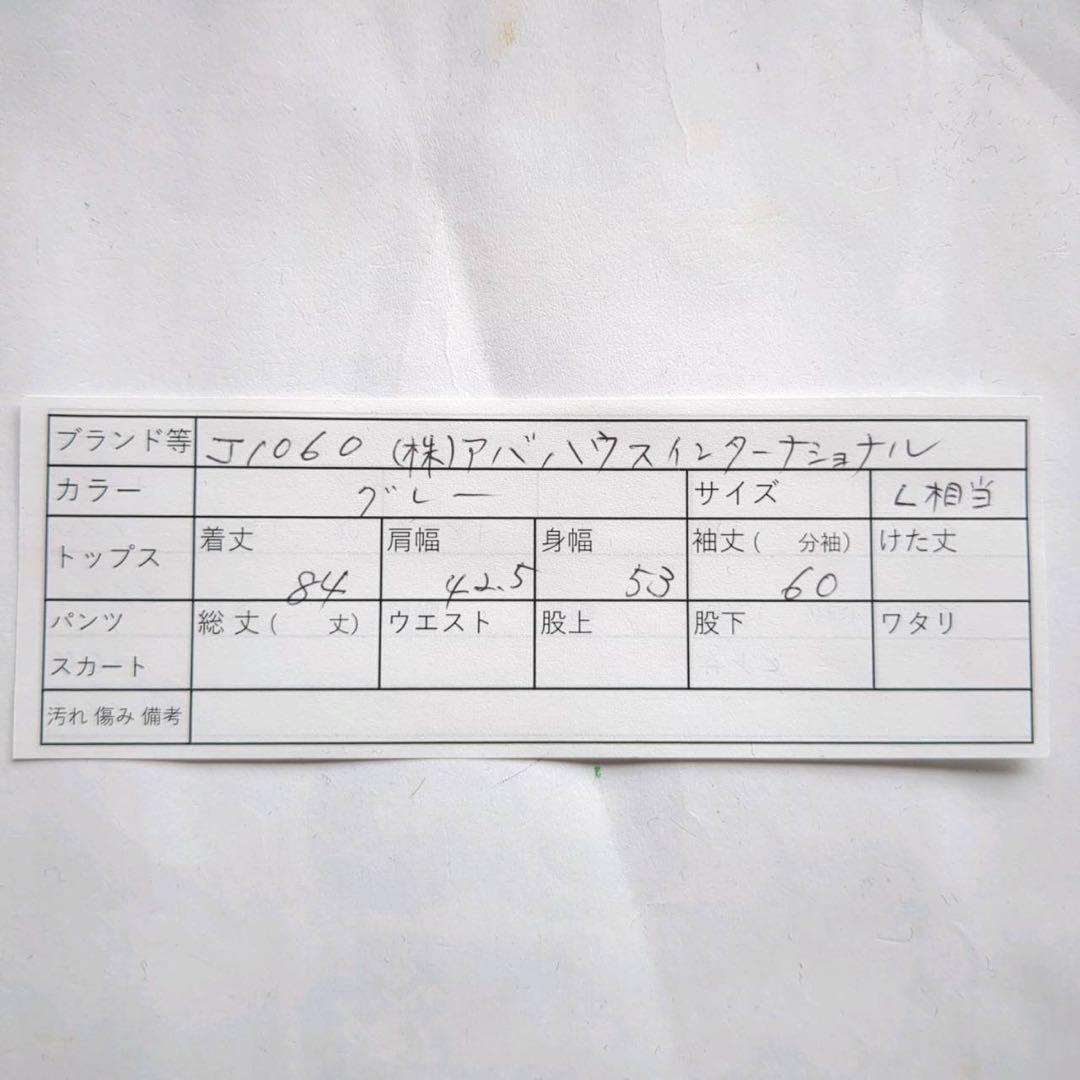 ブランド等 J1060 (株)アバハウスインターナショナル
カラー グレー サイズ L相当
トップス 着丈 84 肩幅 42.5 身幅 53 袖丈(　分袖) 60 けた丈
パンツ スカート 総丈(　丈) ウエスト 股上 股下 ワタリ
汚れ 傷み 備考